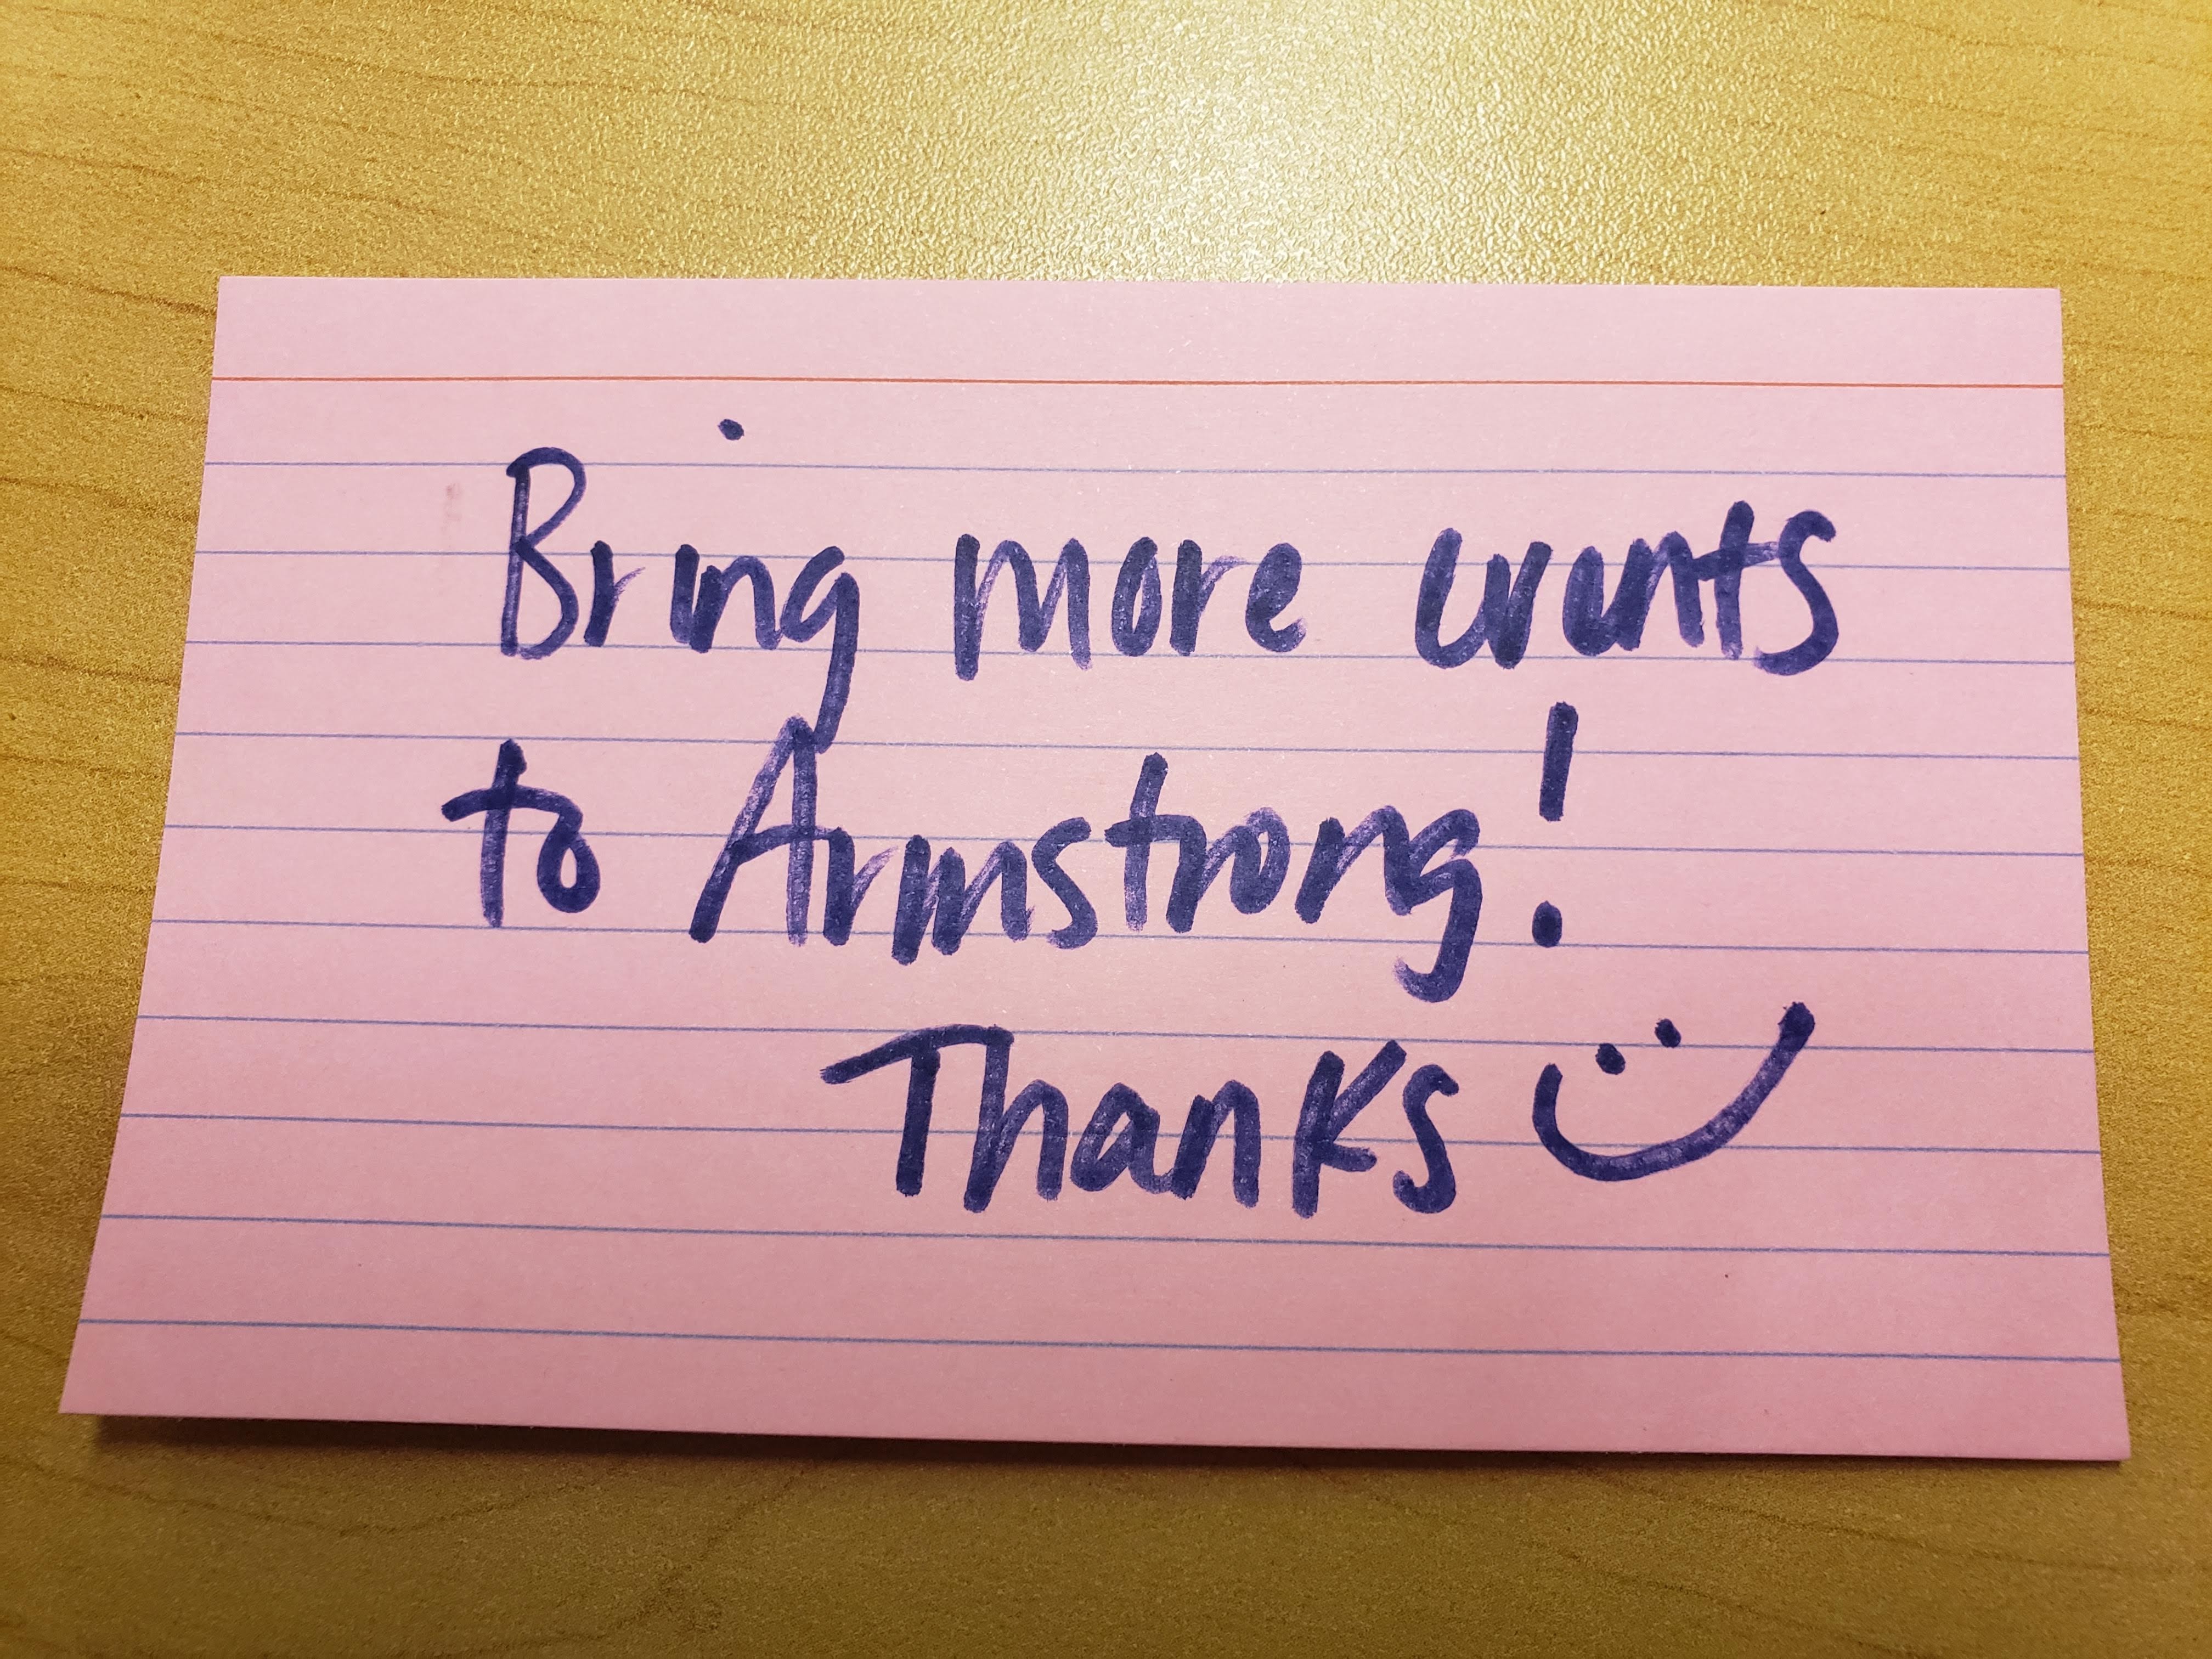 Bring more events
to Armstrong!
Thanks